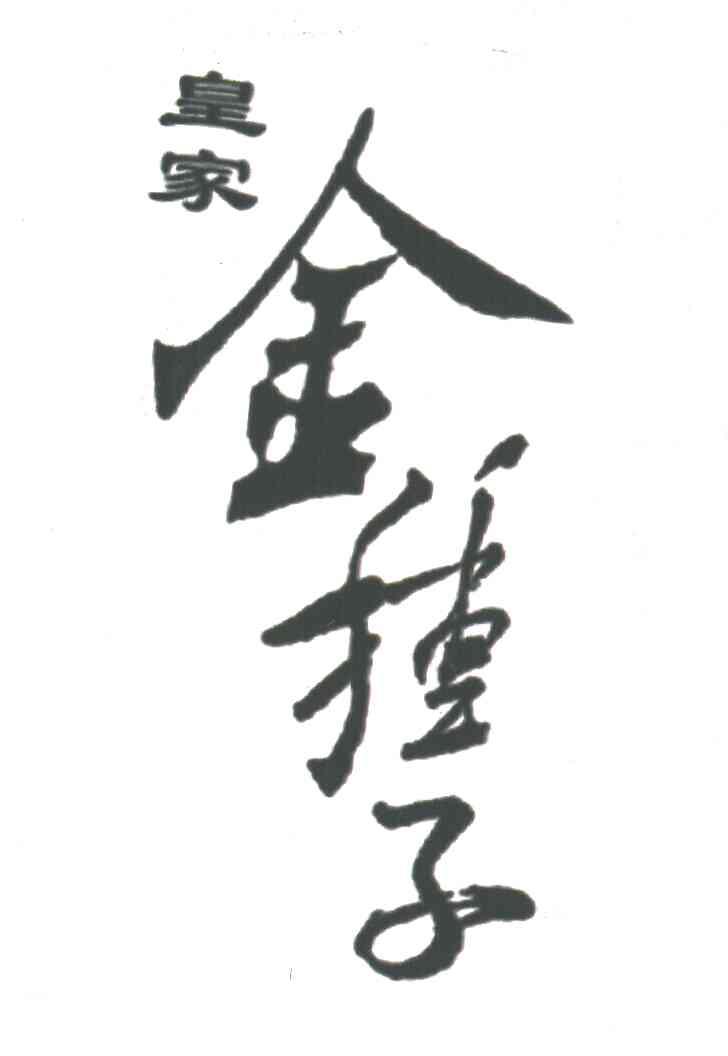 皇家
金種子